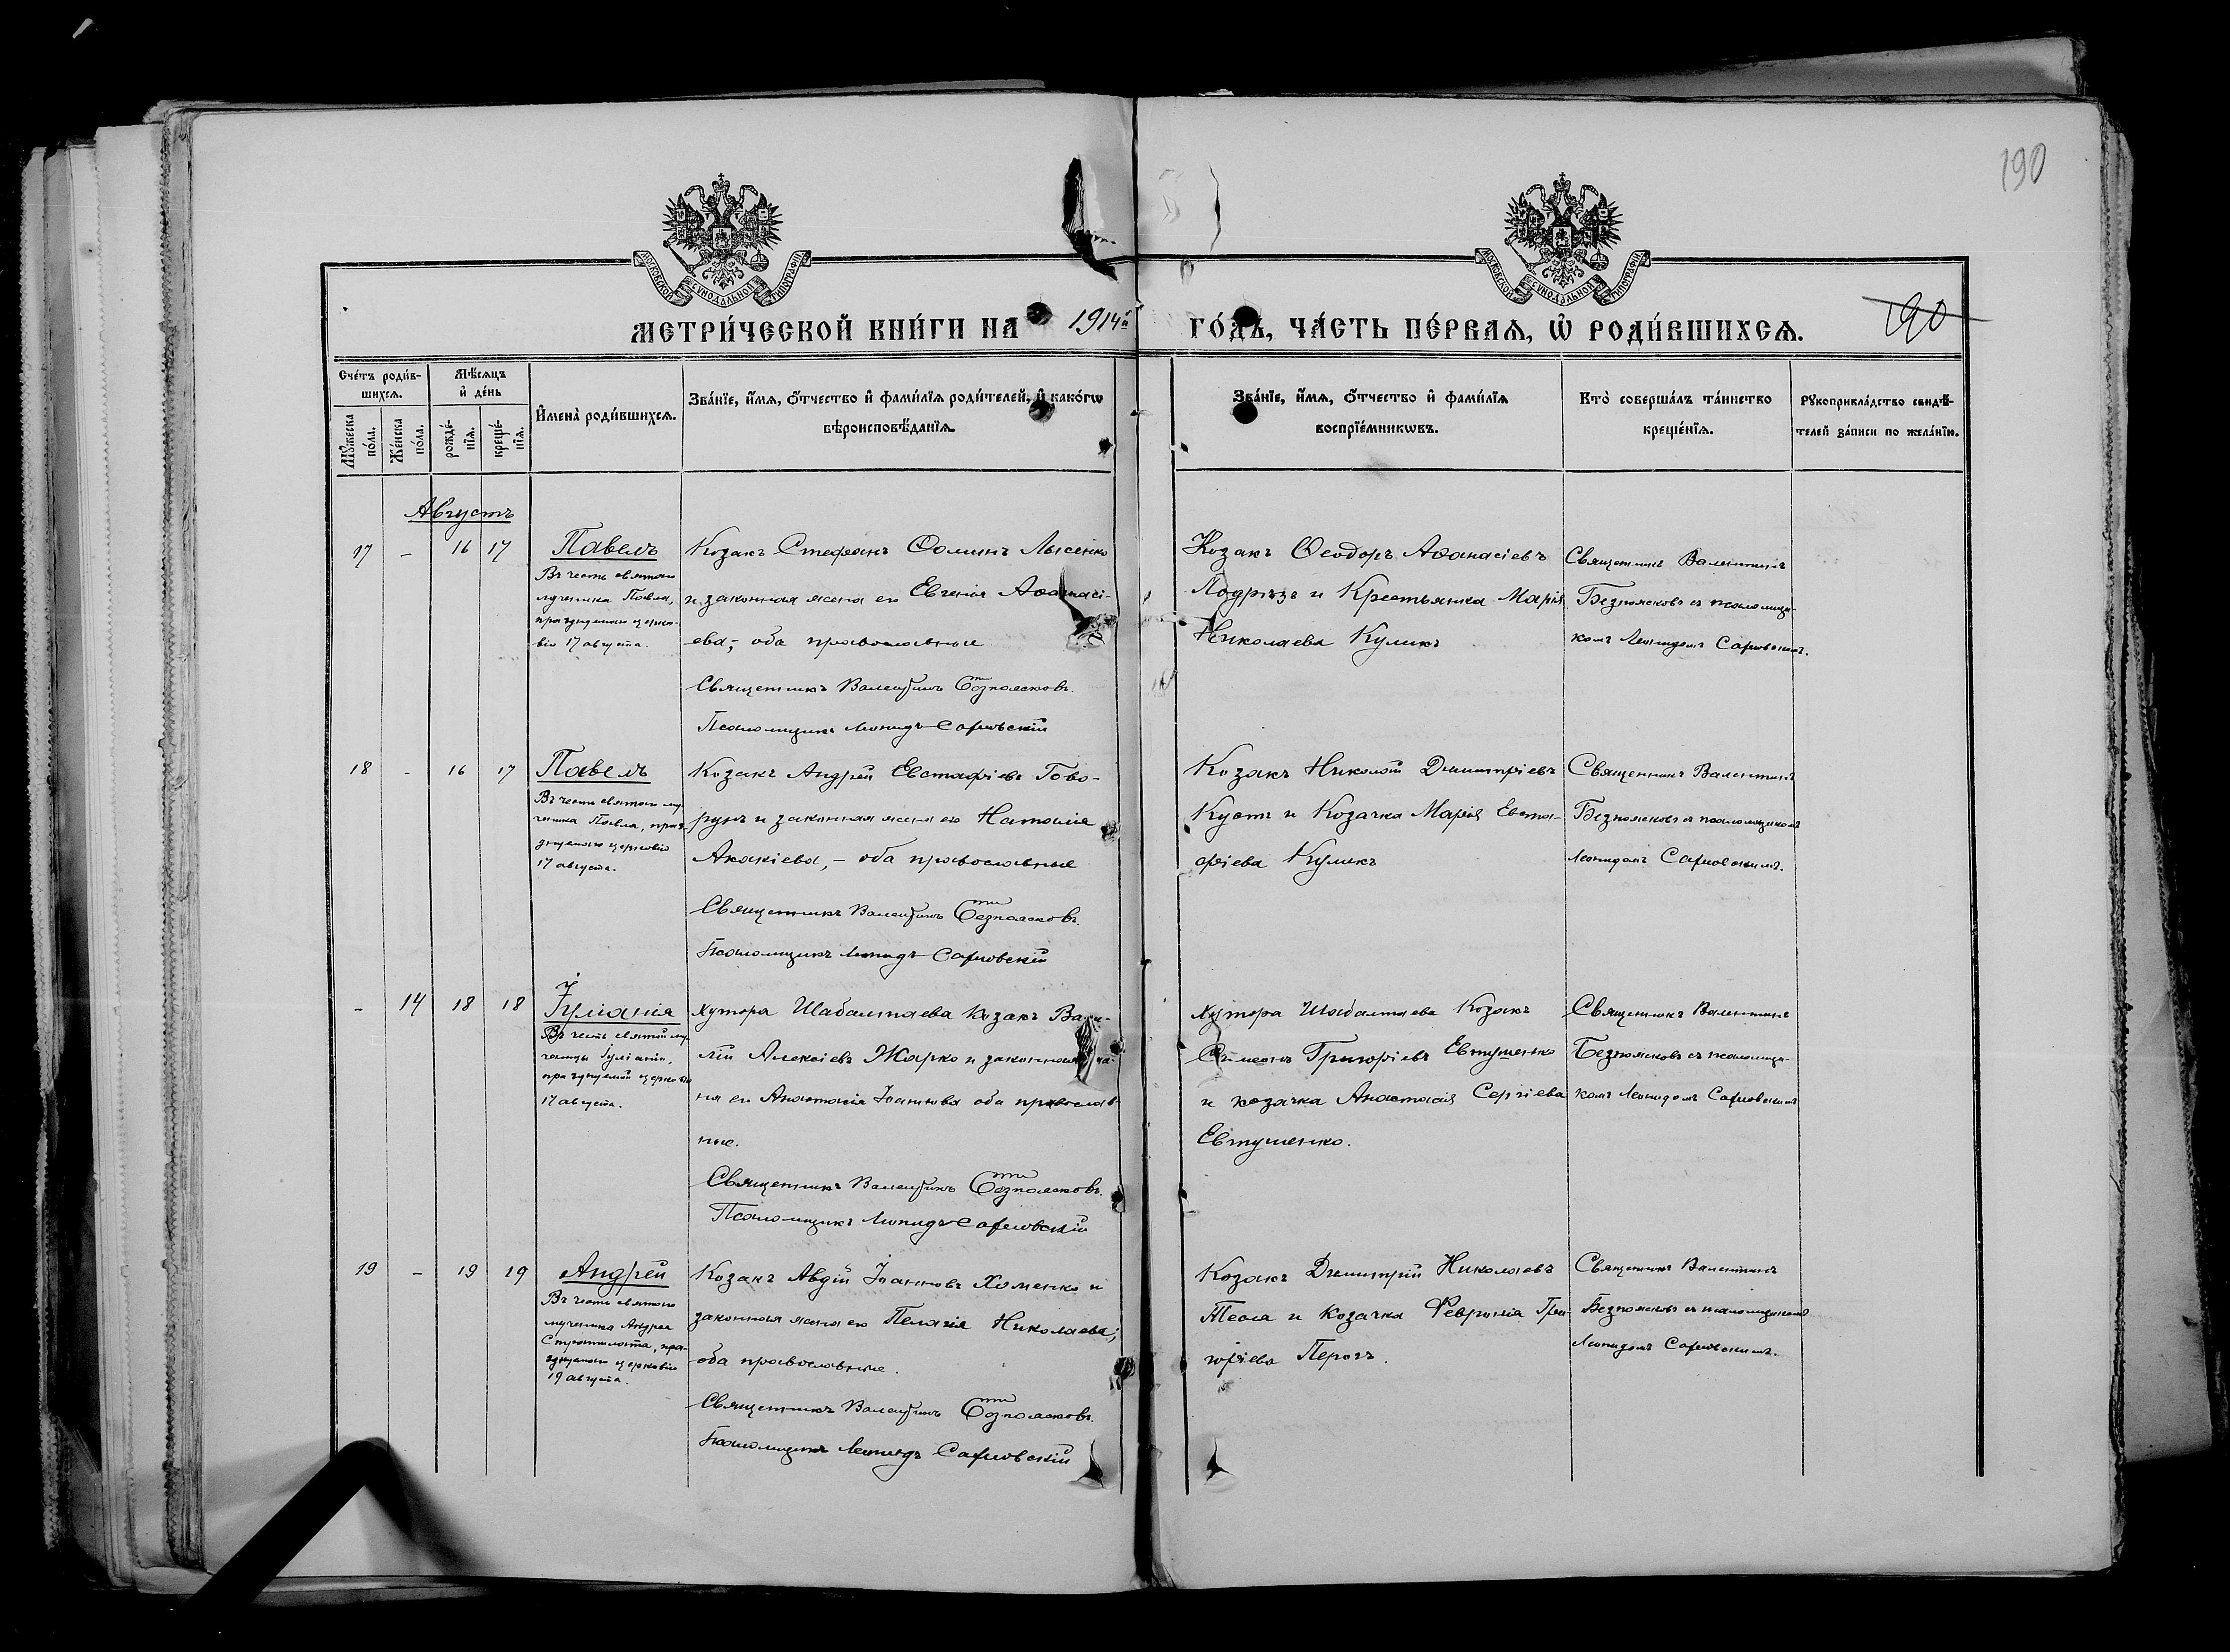 190
МОСКОВСКОЙ СѴНОДАЛЬНОЙ ТИПОГРАФІИ
МОСКОВСКОЙ СѴНОДАЛЬНОЙ ТИПОГРАФІИ
МЕТРИ́ЧЕСКОЙ КНИ́ГИ НА 1914й ГО́ДЪ, ЧА́СТЬ ПЕ́РВАѦ, Ѡ҆ РОДИ́ВШИХСѦ.
190
Сче́тъ роди́в-
шихсѧ.
Мꙋ́жеска по́ла.
Же́нска по́ла.
Мѣ́сѧцъ
и҆ де́нь
рожде́-
нїѧ.
креще́-
нїѧ.
И҆мена̀ роди́вшихсѧ.
Зва́нїе, и҆́мѧ, ѻ҆́тчество и҆ фами́лїѧ роди́телей, и҆ како́гѡ
вѣроисповѣ́данїѧ.
Зва́нїе, и҆́мѧ, ѻ҆́тчество и҆ фами́лїѧ
воспрїе́мникѡвъ.
Кто̀ соверша́лъ та́инство
креще́нїѧ.
Рꙋкоприкла́дство свидѣ́-
телей за́писи по жела́нїю.
Августъ
17 - 16 17
Павелъ
Въ честь святого
мученика Павла,
празднуемаго церко-
вію 17 августа.
Козакъ Стефанъ Ѳоминъ Лысенко
и законная жена его Евгенія Аѳанасі-
ева,- оба православные
Священникъ Валентинъ Безпоясковъ.
Псаломщикъ Леонидъ Сафновскій
Козакъ Ѳеодоръ Аѳанасіевъ
Лодрыгъ и Крестьянка Марія
Николаева Куликъ
Священникъ Валентинъ
Безпоясковъ съ псаломщи-
комъ Леонидомъ
18 - 16 17
Павелъ
Въ честь святого му-
ченика Павла, праз-
днуемаго церковію
17 августа.
Козакъ Андрей Евстафіевъ Гово-
рунъ и законная жена его Наталія
Акакіева,- оба православные
Священникъ Валентинъ Безпоясковъ.
Псаломщикъ Леонидъ
Козакъ Николай Димитріевъ
Кустъ и Козачка Марія Евста-
фіева Куликъ
Священникъ Валентинъ
Безпоясковъ съ псаломщикомъ
Леонидомъ
- 14 18 18
Іуліанія
Въ честь святой му-
ченицы Іуліаніи,
празднуемой церковію
17 августа.
хутора Шабалтаева Козакъ Васи-
лій Алексіевъ Жарко и законная же-
на его Анастасія Іоаннова оба православ-
ные.
Священникъ Валентинъ Безпоясковъ.
Псаломщикъ Леонидъ
хутора Шабалтаева Козакъ
Симеонъ Григоріевъ Евтушенко
и козачка Анастасія Сергіева
Евтушенко.
Священникъ Валентинъ
Безпоясковъ съ псаломщи-
комъ Леонидомъ
19 - 19 19
Андрей
Въ честь святого
мученика Андрея
Стратилата, праз-
днуемаго церковію
19 августа.
Козакъ Авдій Іоанновъ Хоменко и
законная жена его Пелагія Николаева;
оба православные.
Священникъ Валентинъ Безпоясковъ.
Псаломщикъ Леонидъ
Козакъ Димитрій Николаевъ
и Козачка Февронія Гри-
горіева Перогъ.
Священникъ Валентинъ
Безпоясковъ съ псаломщикомъ
Леонидомъ